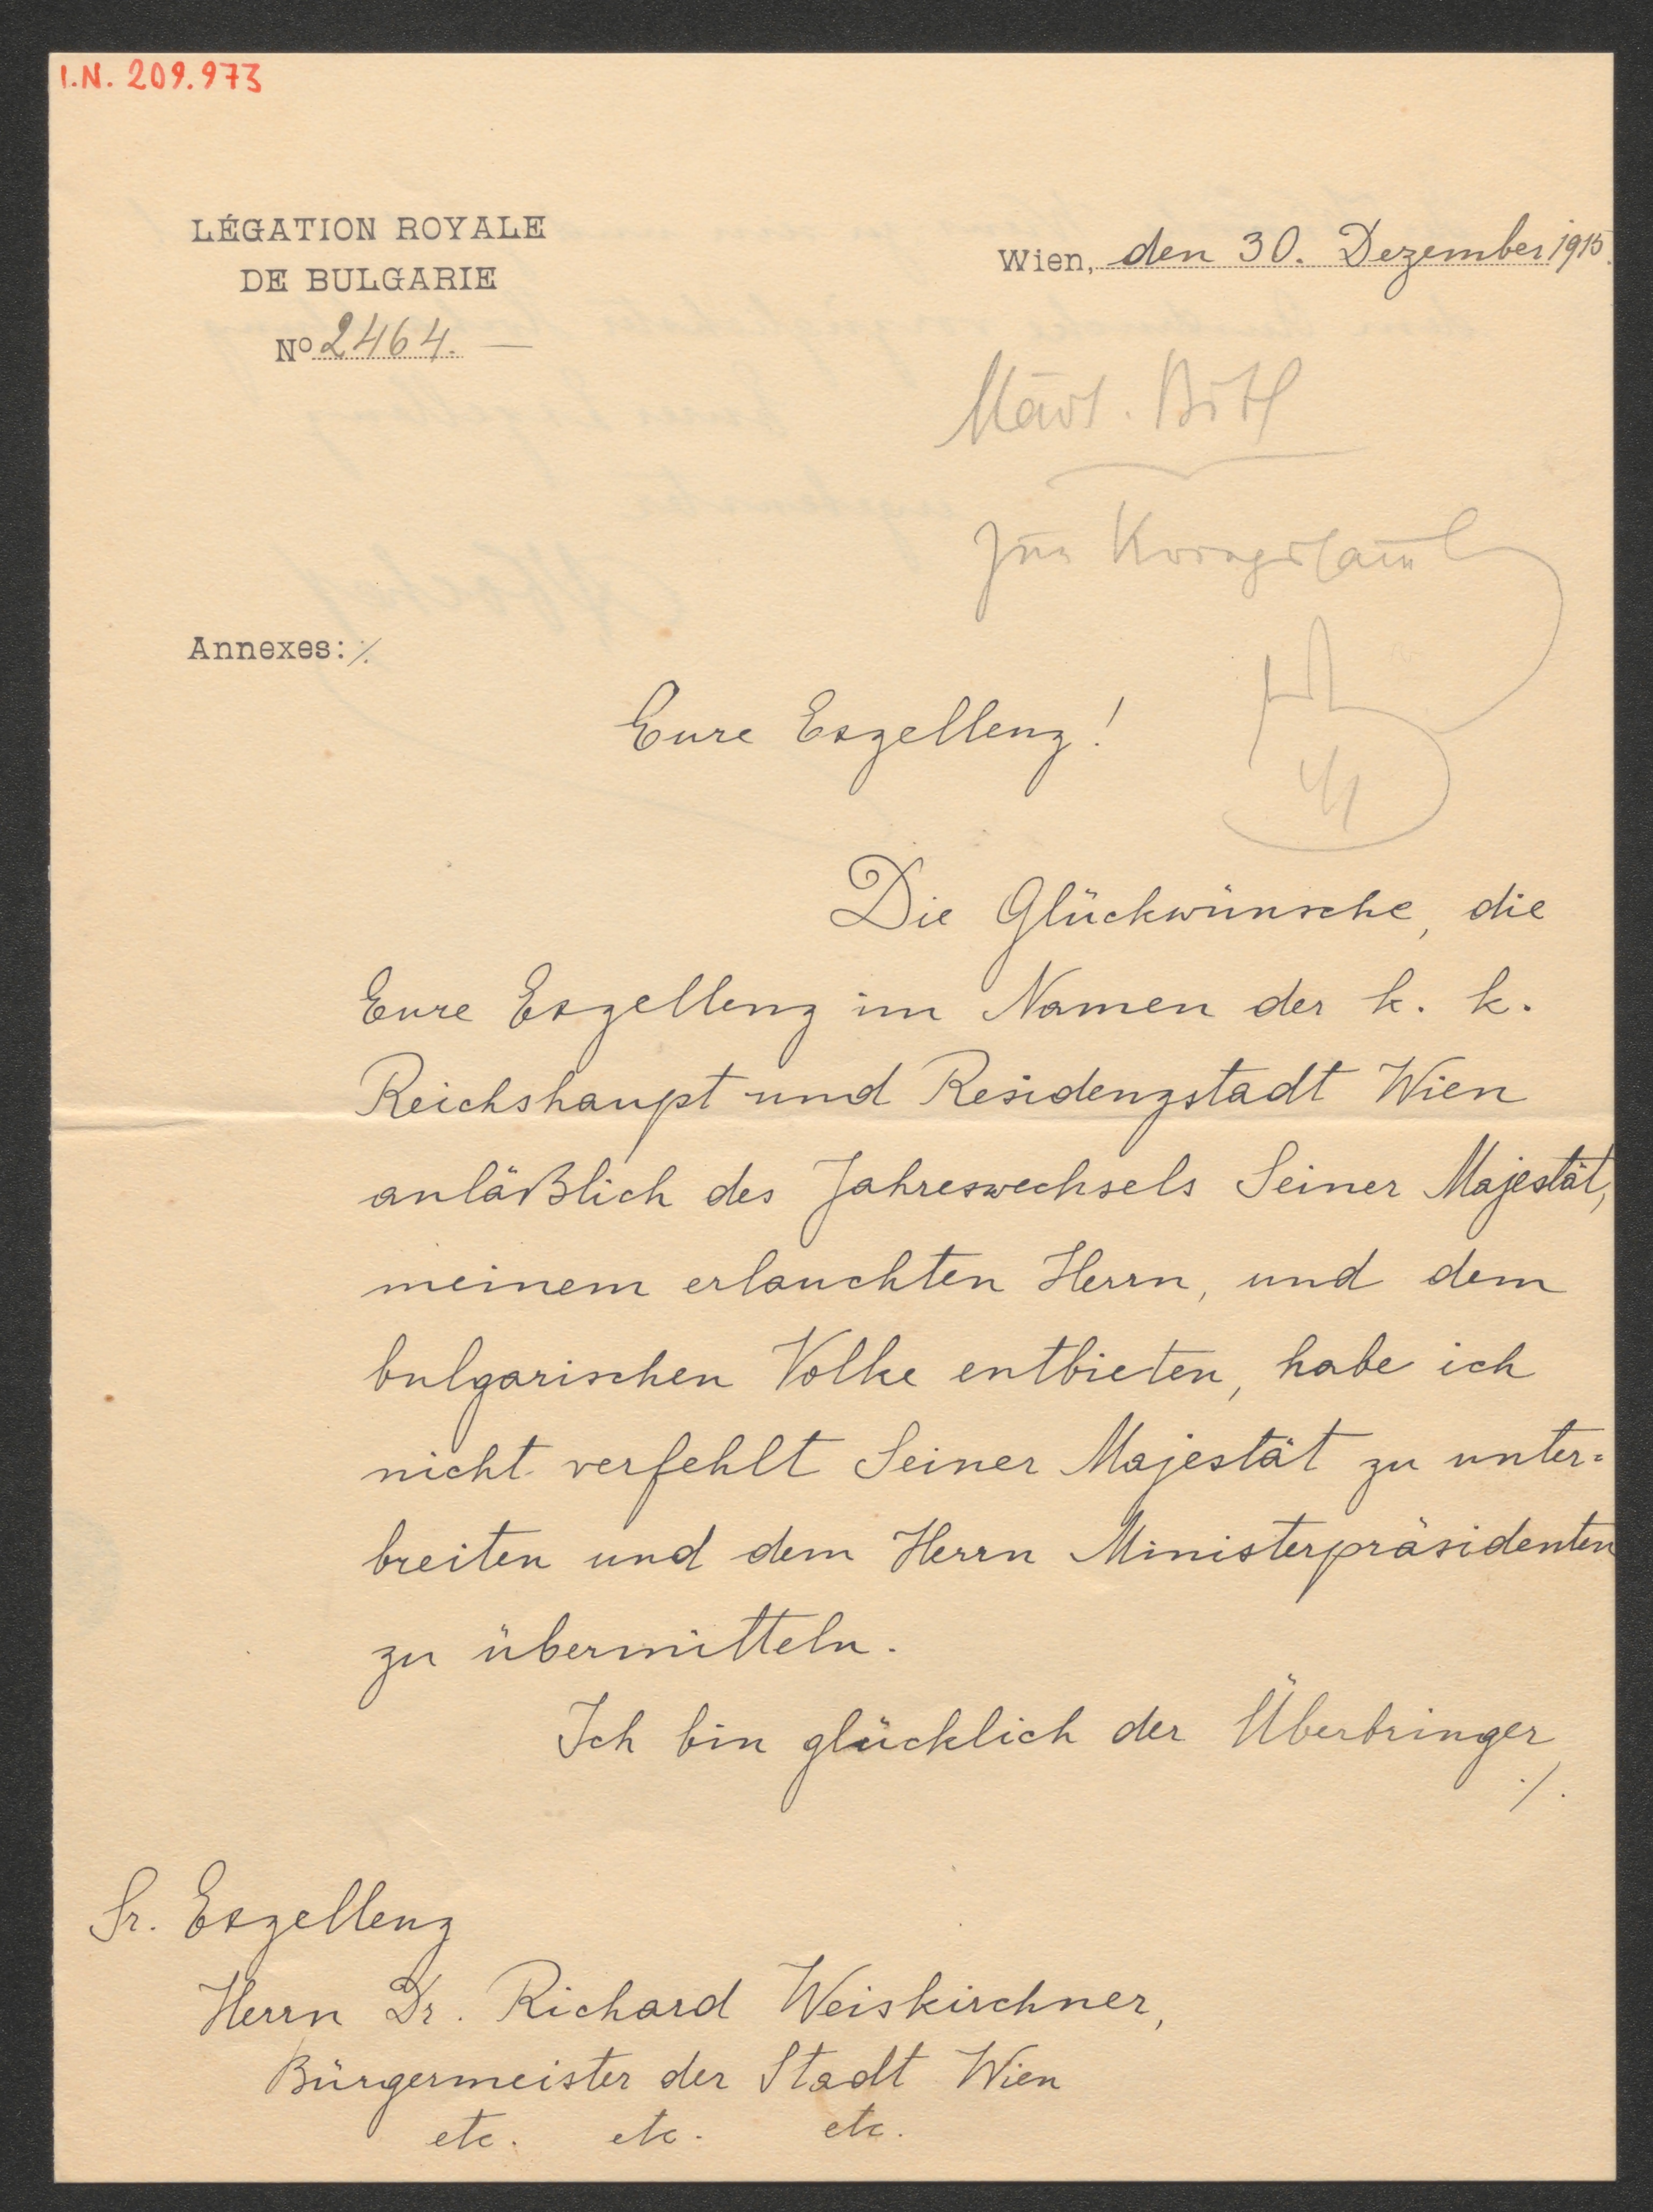 I.N. 209.973
LÉGATION ROYALE
DE BULGARIE
Nº 2464. —
Wien, den 30. Dezember 1915.
Annexes: ⁒
Eure Exzellenz!
Die Glückwünsche, die
Eure Exzellenz im Namen der k. k.
Reichshaupt und Residenzstadt Wien
anläßlich des Jahreswechsels Seiner Majestät,
meinem erlauchten Herrn, und dem
bulgarischen Volke entbieten, habe ich
nicht verfehlt Seiner Majestät zu unter=
breiten und dem Herrn Ministerpräsidenten
zu übermitteln.
Ich bin glücklich der Überbringer
./.
Sr. Exzellenz
Herrn Dr. Richard Weiskirchner,
Bürgermeister der Stadt Wien
etc. etc. etc.